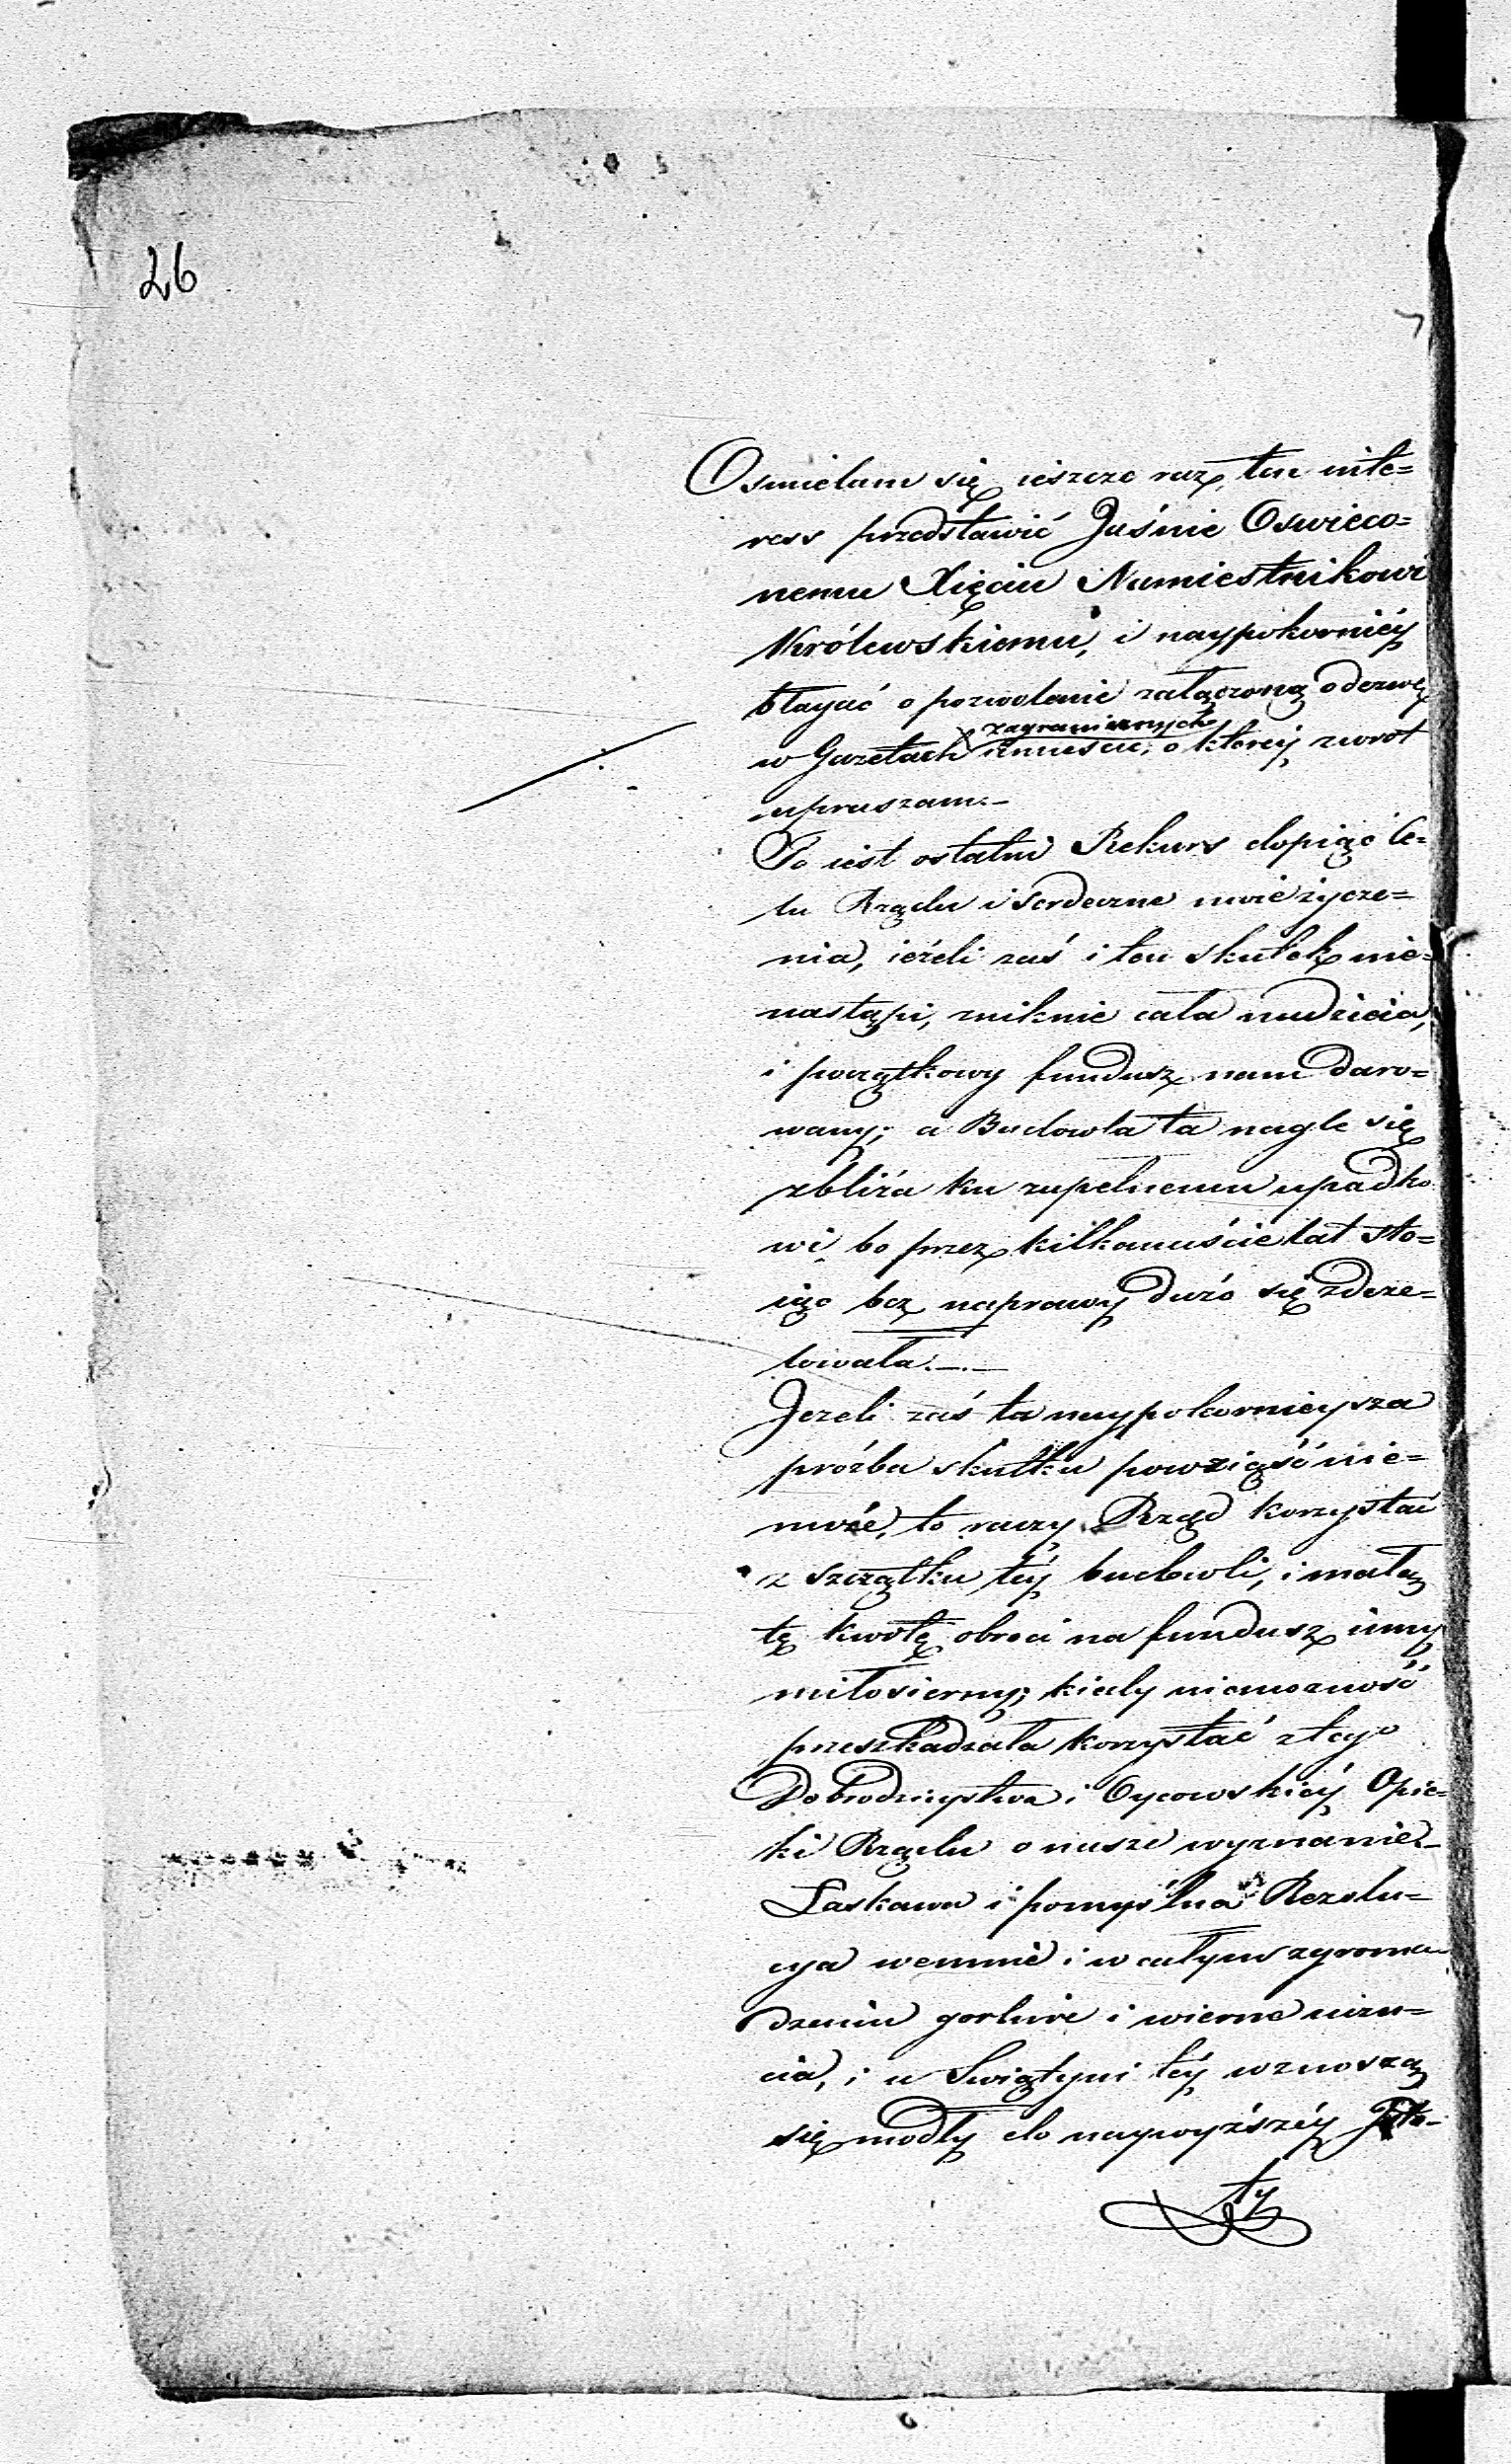 26
Osmielam się ieszcze raz, ten inte=
ress przedstawić Jaśnie Oswieco=
nemu Xięciu Namiestnikowi
Królewskiemu, i naypokorniéy
błagać o pozwolenie załączoną odezwę
zagranicznych
w Gazetach umieścić, o któréy zwrot
upraszam.—
To iest ostatni Rekurs dopiąć Ce=
lu Rządu i serdeczne moie życze=
nia, ieżeli zaś i ten skutek nie=
nastąpi, zniknie cała nadzieia,
i początkowy fundusz nam daro=
wany; a Budowla ta nagle się
zbliża ku zupełnemu upadko
wi, bo przez kilkanaście lat sto=
iąc bez naprawy dużo się zdeze=
lowała.—.—
Jezeli zaś ta naypokornieysza
prożba skutku powziąść nie=
może, to raczy Rząd korzystać
z szczątku téy budowli, i małą
tę kwotę obroci na fundusz inny
miłosierny; kiedy niemożność
przeszkadzała korzystać z tego
Dobrodzieystwa i Oycowskiéy Opie=
ki Rządu o nasze wyznanie.—
Łaskawa i pomyślna Rezolu=
cya wemnie i w całym zgroma
dzeniu gorliwe i wierne uczu=
cia, i w Swiątyni téy wznoszą
się modły do naywyższéy Isto-
ty